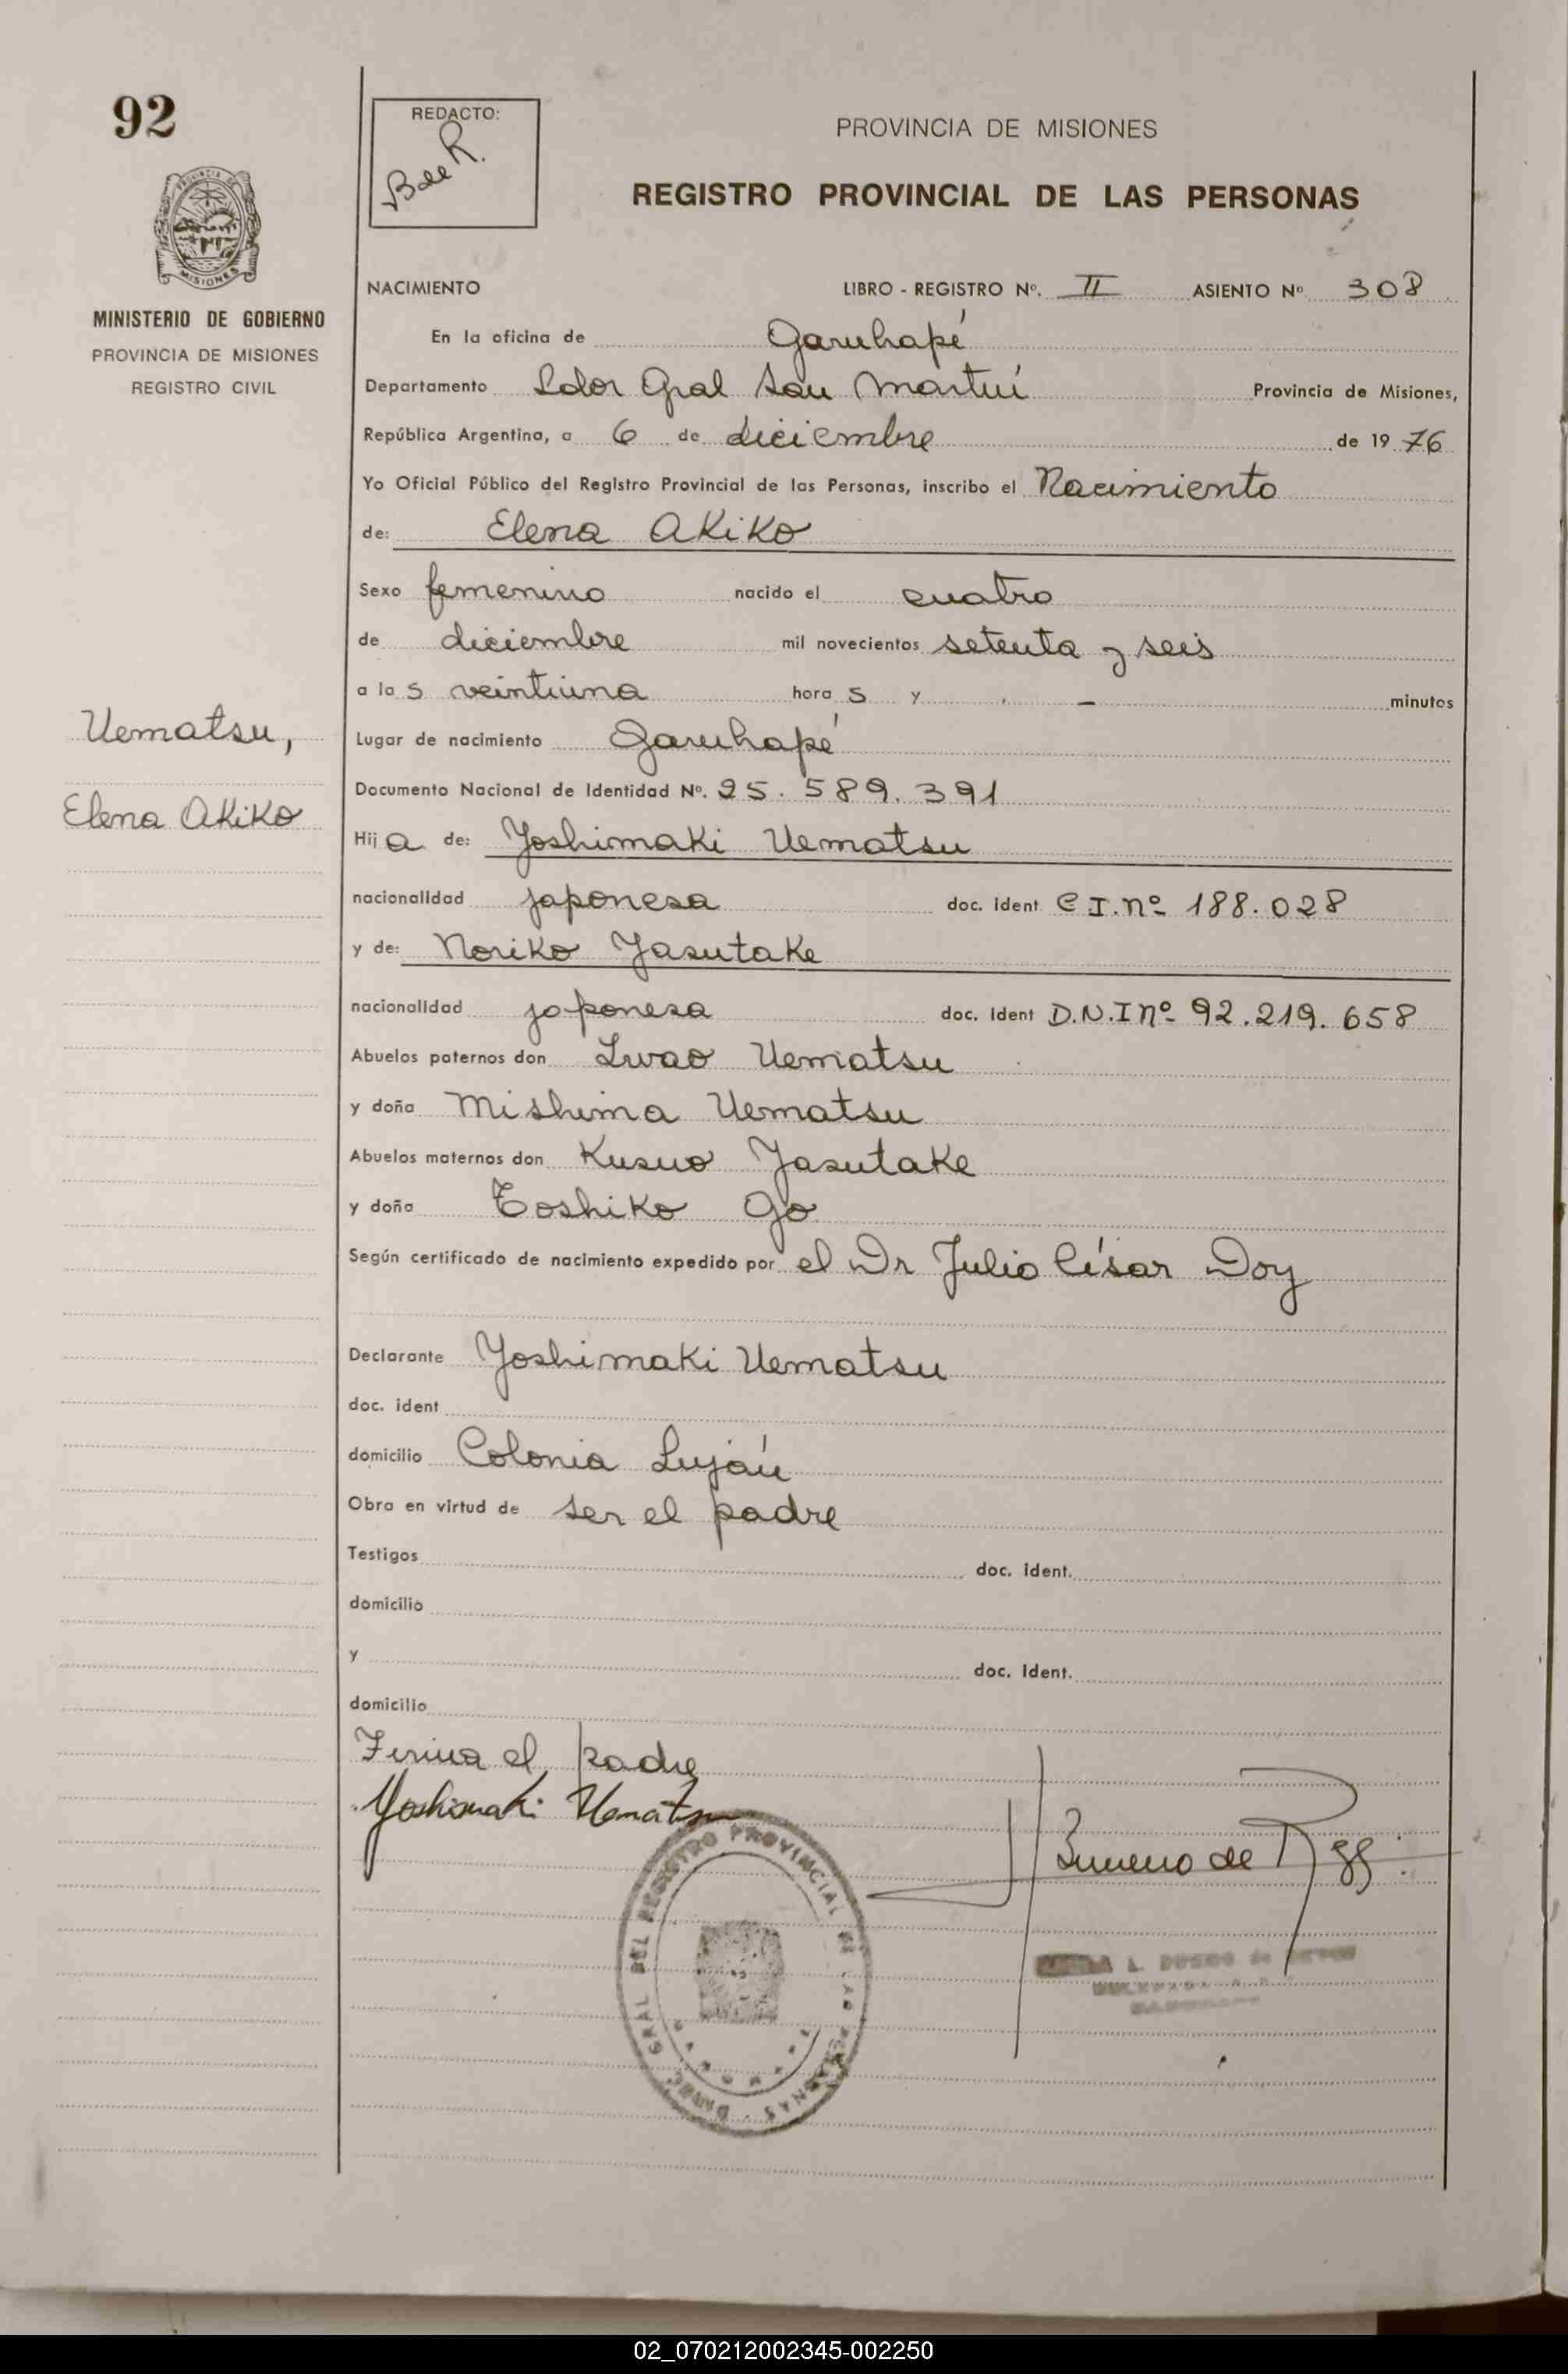 92
REDACTO:
B de R.
PROVINCIA DE MISIONES
REGISTRO PROVINCIAL DE LAS PERSONAS
MISIONES
MINISTERIO DE GOBIERNO
PROVINCIA DE MISIONES
REGISTRO CIVIL
NACIMIENTO LIBRO - REGISTRO Nº. II ASIENTO Nº 308
En la oficina de Garuhapé
Departamento Ldor Gral San Martín Provincia de Misiones,
República Argentina, a 6 de diciembre de 19 76
Yo Oficial Público del Registro Provincial de las Personas, inscribo el Nacimiento
de: Elena Akiko
Sexo femenino nacido el cuatro
de diciembre mil novecientos setenta y seis
a la s veintiuna hora s y - minutos
Uematsu,
Elena Akiko
Lugar de nacimiento Garuhapé
Documento Nacional de Identidad Nº. 25.589.391
Hij a de: Yoshimaki Uematsu
nacionalidad japonesa doc. ident C I. nº 188.028
y de: Noriko Yasutake
nacionalidad japonesa doc. ident D.N.I nº 92.219.658
Abuelos paternos don Iwao Uematsu
y doña Mishima Uematsu
Abuelos maternos don Kusuo Yasutake
y doña Toshiko Go
Según certificado de nacimiento expedido por el Dr Julio César Doy
Declarante Yoshimaki Uematsu
doc. ident
domicilio Colonia Luján
Obra en virtud de ser el padre
Testigos doc. ident.
domicilio
y doc. ident.
domicilio
Firma el padre
Yoshimaki Uematsu
DEL REGISTRO PROVINCIAL DE LAS PERSONAS
02_070212002345-002250